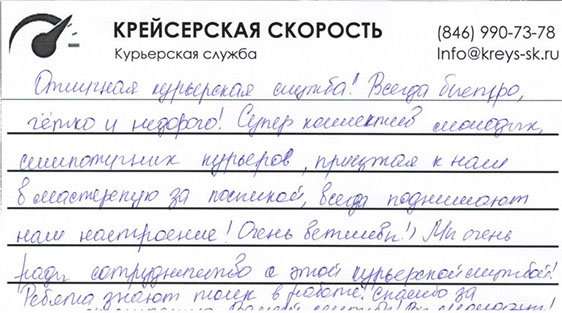 КРЕЙСЕРСКАЯ СКОРОСТЬ
Курьерская служба
(846) 990-73-78
Info@kreys-sk.ru
Отличная курьерская служба! Всегда быстро,
чётко и недорого! Супер коллектив молодых,
симпотичных курьеров, приезжая к нам
в мастерскую за посылкой, всегда поднимают
нам настроение! Очень вежливы!) Мы очень
рады сотрудничество с этой курьерской службой!
Ребята знают толк в работе. Спасибо за